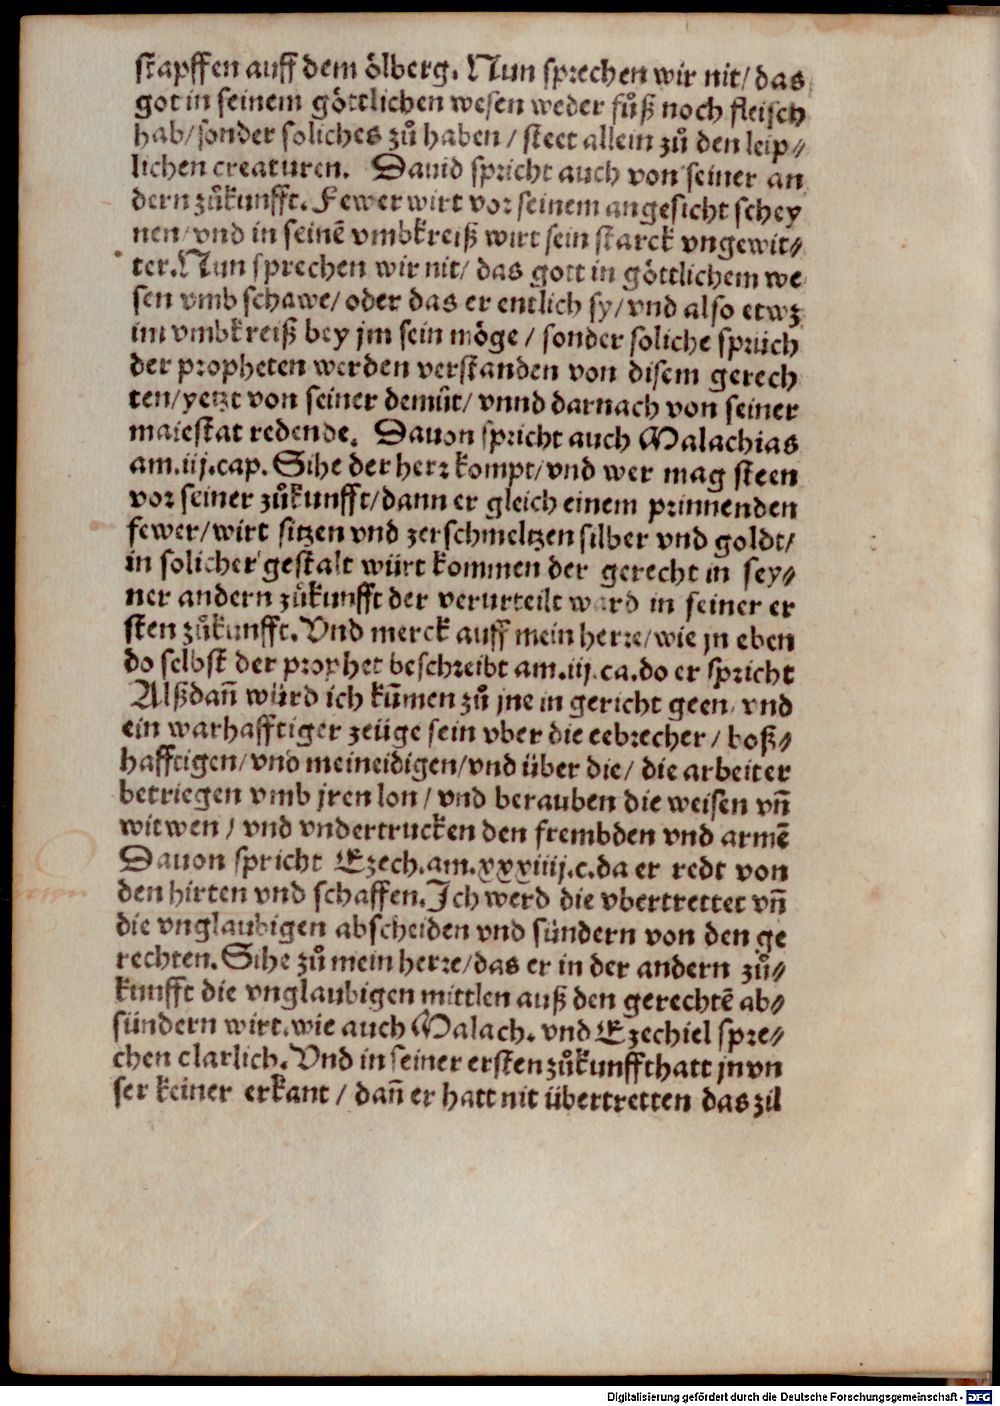 stapffen auff dem ölberg. Nun sprechen wir nit/ das
got in seinem göttlichen wesen weder fuͦß noch fleisch
hab/ sonder soliches zuͦ haben / steet allein zuͦ den leip⸗
lichen creaturen. Dauid spricht auch von seiner an
dern zuͦkunfft. Fewer wirt vor seinem angesicht schey
nen/ vnd in seinē vmbkreiß wirt sein starck vngewit⸗
ter. Nun sprechen wir nit/ das gott in göttlichem we
sen vmb schawe/ oder das er entlich sy/ vnd also etwz
im vmbkreiß bey jm sein möge / sonder soliche sprüch
der propheten werden verstanden von disem gerech
ten/ yetzt von seiner demüt/ vnnd darnach von seiner
maiestat redende. Dauon spricht auch Malachias
am.iij.cap. Sihe der herr kompt/ vnd wer mag steen
vor seiner zuͦkunfft/ dann er gleich einem prinnenden
fewer/ wirt sitzen vnd zerschmeltzen silber vnd goldt/
in solicher gestalt würt kommen der gerecht in sey⸗
ner andern zuͦkunfft der verurteilt ward in seiner er
sten zuͦkunfft. Vnd merck auff mein herre/ wie jn eben
do selbst der prophet beschreibt am.iij.ca. do er spricht
Alßdañ würd ich kūmen zuͦ jne in gericht geen/ vnd
ein warhafftiger zeüge sein vber die eebrecher / boß⸗
hafftigen/ vnd meineidigen/ vnd über die/ die arbeiter
betriegen vmb jren lon / vnd berauben die weisen vñ
witwen / vnd vndertrucken den frembden vnd armē
Dauon spricht Ezech.am.xxxiiij.c. da er redt von
den hirten vnd schaffen. Ich werd die vbertrettet vñ
die vnglaubigen abscheiden vnd sündern von den ge
rechten. Sihe zuͦ mein herre/ das er in der andern zuͦ⸗
kunfft die vnglaubigen mittlen auß den gerechtē ab⸗
sündern wirt. wie auch Malach. vnd Ezechiel spre⸗
chen clarlich. Vnd in seiner ersten zuͦkunfft hatt jn vn
ser keiner erkant / dañ er hatt nit übertretten das zil
Digitalisierung gefördert durch die Deutsche Forschungsgemeinschaft - DFG